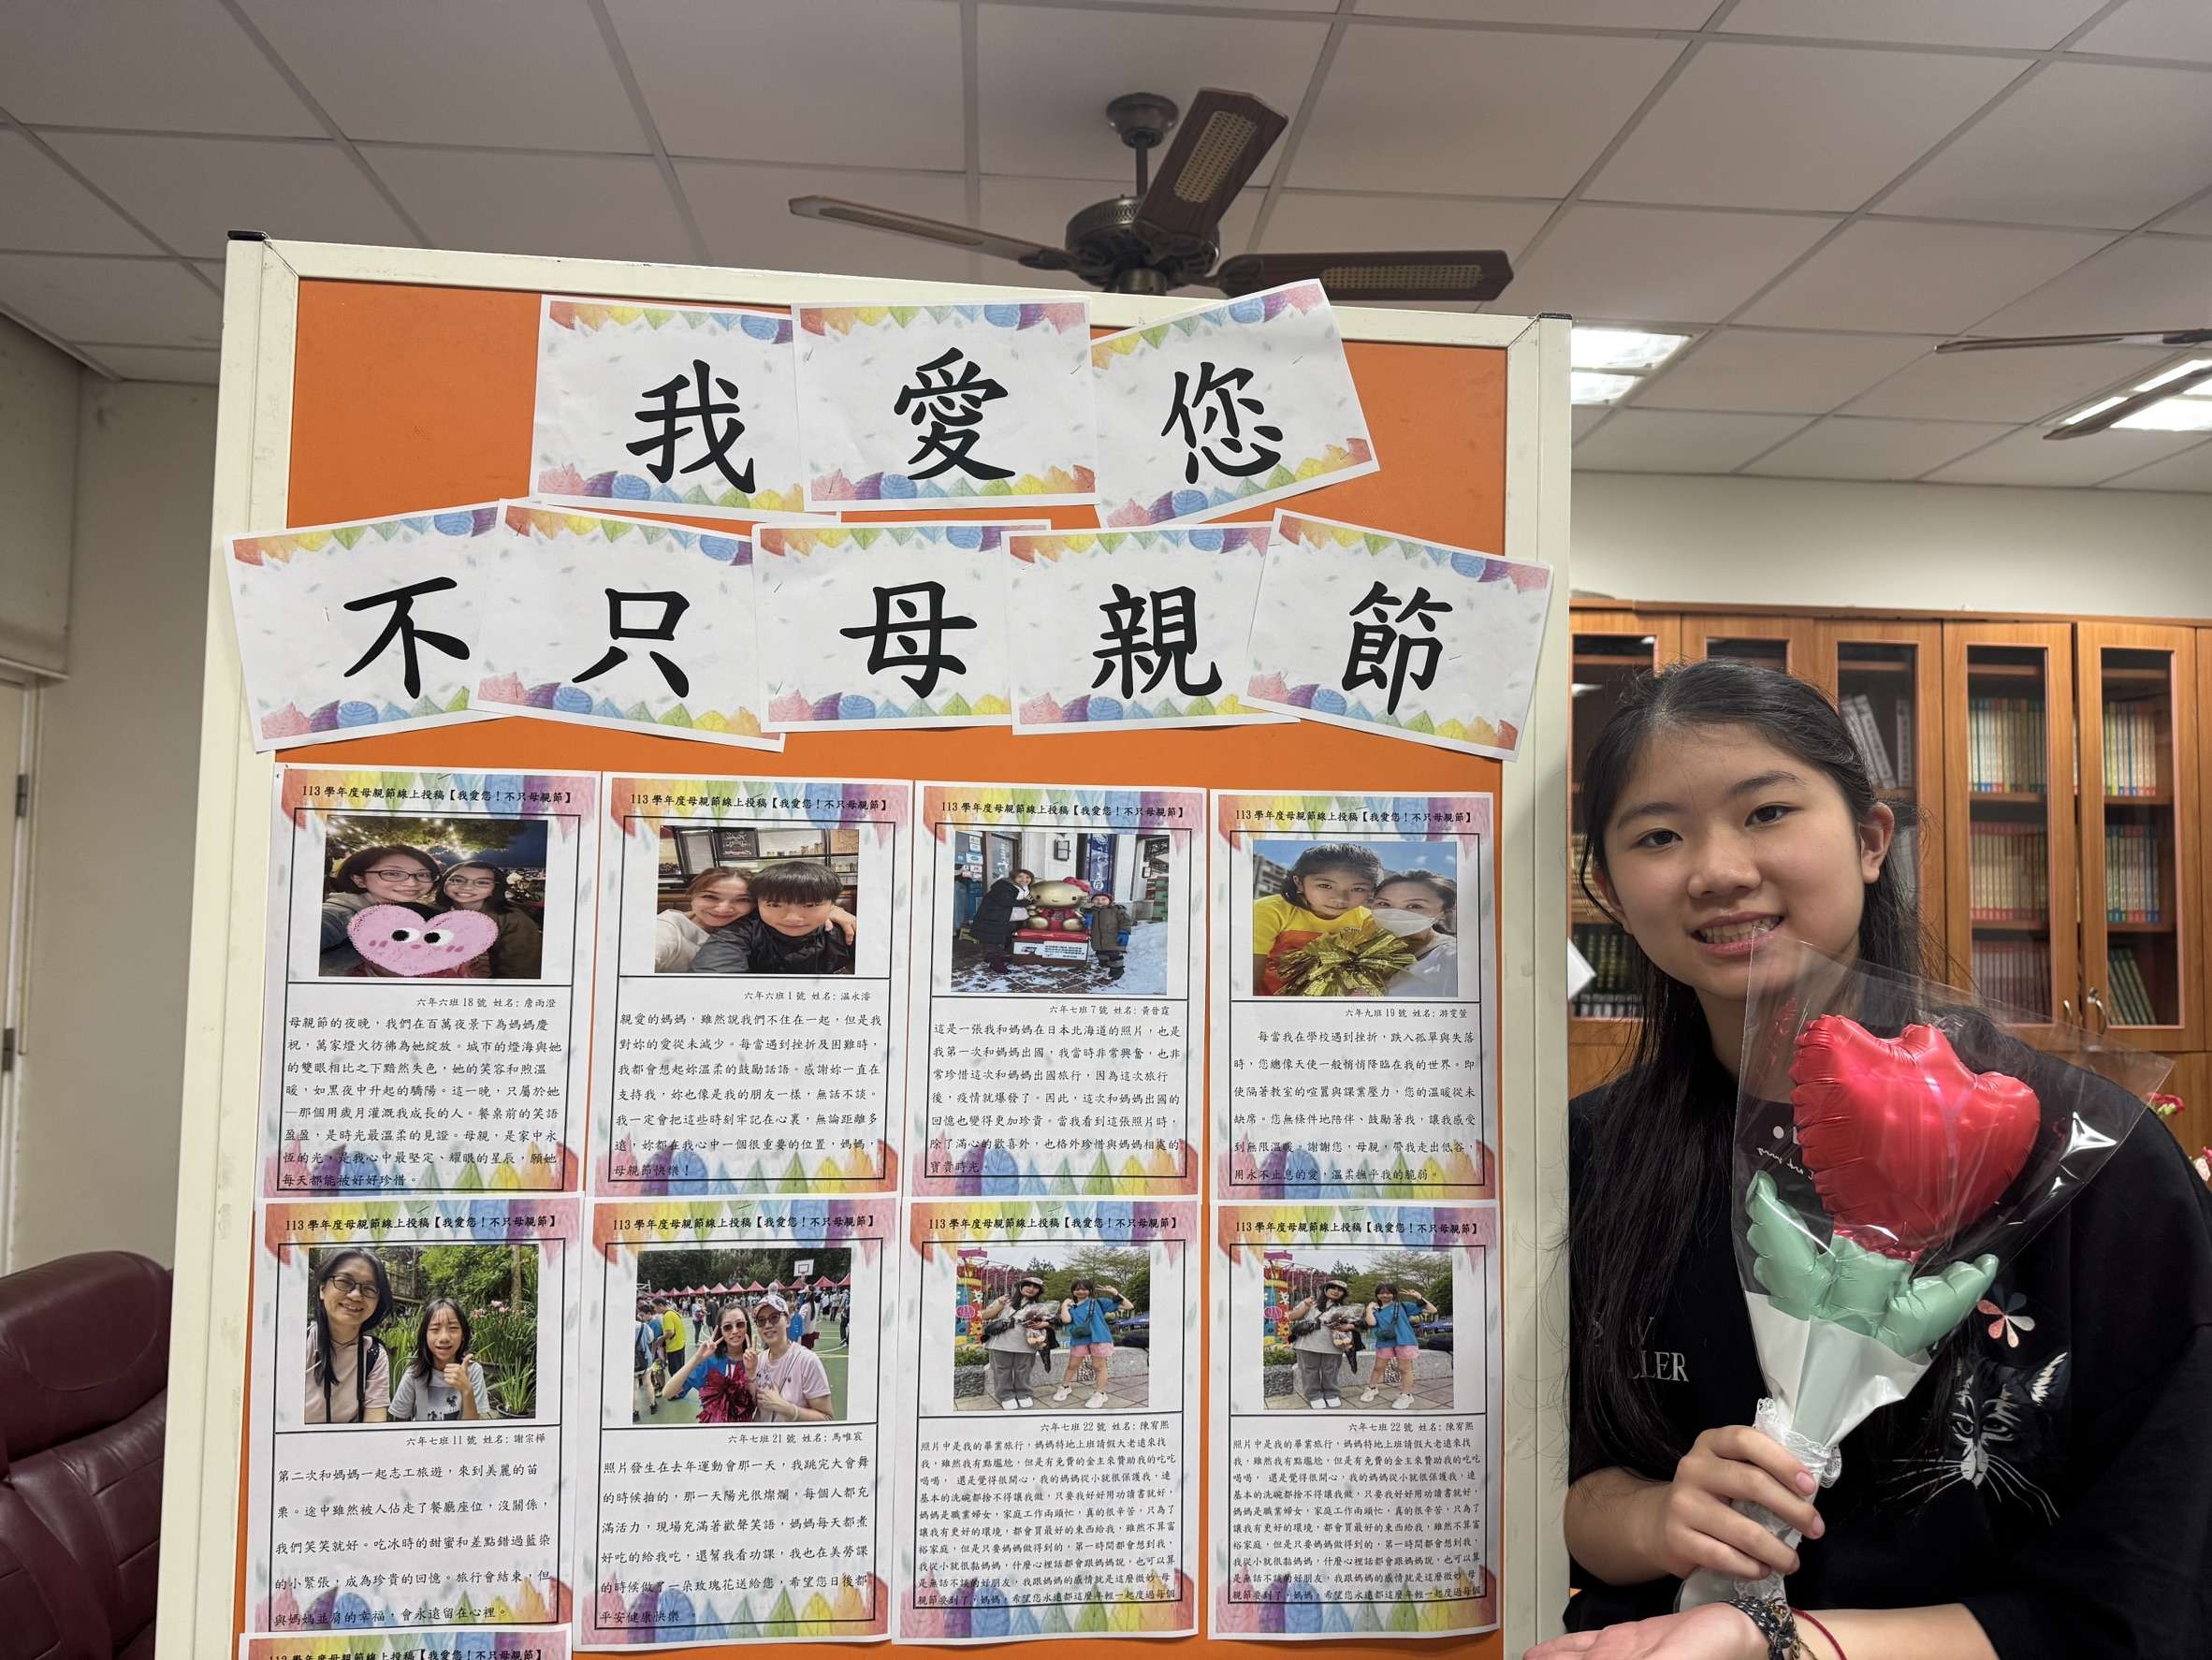 我愛您
不只母親節
113學年度母親節線上投稿【我愛您！不只母親節】
六年六班18號 姓名:詹雨澄
母親節的夜晚，我們在百萬夜景下為媽媽慶
祝，萬家燈火彷彿為她綻放。城市的燈海與她
的雙眼相比之下黯然失色，她的笑容和煦溫
暖，如黑夜中升起的驕陽。這一晚，只屬於她
—那個用歲月灌溉我成長的人。餐桌前的笑語
盈盈，是時光最溫柔的見證。母親，是家中永
恆的光，是我心中最堅定、耀眼的星辰，願她
每天都能被好好珍惜。
113學年度母親節線上投稿【我愛您！不只母親節】
六年六班1號 姓名:温永濬
親愛的媽媽，雖然說我們不住在一起，但是我
對妳的愛從未減少。每當遇到挫折及困難時，
我都會想起妳溫柔的鼓勵話語。感謝妳一直在
支持我，妳也像是我的朋友一樣，無話不談。
我一定會把這些時刻牢記在心裏，無論距離多
遠，妳都在我心中一個很重要的位置，媽媽，
母親節快樂！
113學年度母親節線上投稿【我愛您！不只母親節】
六年七班7號 姓名:黃晉霆
這是一張我和媽媽在日本北海道的照片，也是
我第一次和媽媽出國，我當時非常興奮，也非
常珍惜這次和媽媽出國旅行，因為這次旅行
後，疫情就爆發了。因此，這次和媽媽出國的
回憶也變得更加珍貴。當我看到這張照片時，
除了滿心的歡喜外，也格外珍惜與媽媽相處的
寶貴時光。
113學年度母親節線上投稿【我愛您！不只母親節】
六年九班19號 姓名:游雯萱
每當我在學校遇到挫折，跌入孤單與失落
時，您總像天使一般悄悄降臨在我的世界。即
使隔著教室的喧囂與課業壓力，您的溫暖從未
缺席。您無條件地陪伴、鼓勵著我，讓我感受
到無限溫暖。謝謝您，母親，帶我走出低谷，
用永不止息的愛，溫柔撫平我的脆弱。
113學年度母親節線上投稿【我愛您！不只母親節】
六年七班11號 姓名:謝宗樺
第二次和媽媽一起志工旅遊，來到美麗的苗
栗。途中雖然被人佔走了餐廳座位，沒關係，
我們笑笑就好。吃冰時的甜蜜和差點錯過藍染
的小緊張，成為珍貴的回憶。旅行會結束，但
與媽媽並肩的幸福，會永遠留在心裡。
113學年度母親節線上投稿【我愛您！不只母親節】
六年七班21號 姓名:馬唯宸
照片發生在去年運動會那一天，我跳完大會舞
的時候拍的，那一天陽光很燦爛，每個人都充
滿活力，現場充滿著歡聲笑語，媽媽每天都煮
好吃的給我吃，還幫我看功課，我也在美勞課
的時候做了一朵玫瑰花送給您，希望您日後都
平安健康快樂。
113學年度母親節線上投稿【我愛您！不只母親節】
六年七班22號 姓名:陳宥熙
照片中是我的畢業旅行，媽媽特地上班請假大老遠來找
我，雖然我有點尷尬，但是有免費的金主來贊助我的吃吃
喝喝， 還是覺得很開心，我的媽媽從小就很保護我，連
基本的洗碗都捨不得讓我做，只要我好好用功讀書就好，
媽媽是職業婦女，家庭工作兩頭忙，真的很辛苦，只為了
讓我有更好的環境，都會買最好的東西給我，雖然不算富
裕家庭，但是只要媽媽做得到的，第一時間都會想到我，
我從小就很黏媽媽，什麼心裡話都會跟媽媽說，也可以算
是無話不談的好朋友，我跟媽媽的感情就是這麼微妙，母
親節要到了，媽媽，希望您永遠都這麼年輕一起度過每個
113學年度母親節線上投稿【我愛您！不只母親節】
六年七班22號 姓名:陳宥熙
照片中是我的畢業旅行，媽媽特地上班請假大老遠來找
我，雖然我有點尷尬，但是有免費的金主來贊助我的吃吃
喝喝， 還是覺得很開心，我的媽媽從小就很保護我，連
基本的洗碗都捨不得讓我做，只要我好好用功讀書就好，
媽媽是職業婦女，家庭工作兩頭忙，真的很辛苦，只為了
讓我有更好的環境，都會買最好的東西給我，雖然不算富
裕家庭，但是只要媽媽做得到的，第一時間都會想到我，
我從小就很黏媽媽，什麼心裡話都會跟媽媽說，也可以算
是無話不談的好朋友，我跟媽媽的感情就是這麼微妙，母
親節要到了，媽媽，希望您永遠都這麼年輕一起度過每個
113學年度母親節線上投稿【我愛您！不只母親節】